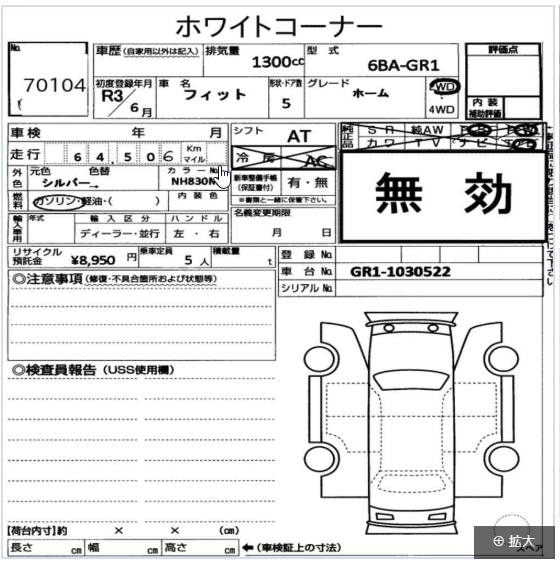 ホワイトコーナー
No. 70104
車歴 (自家用以外は記入) 排気量 1300cc 型式 6BA-GR1 評価点
初度登録年月 R3/6月 車名 フィット 形状・ドア数 5 グレード ホーム 2WD・4WD 内装補助評価
車検 年 月 シフト AT 純正品 SR 純AW PS PW
カワ TV ナビ
走行 64,506 Km マイル 冷房 AC
外色 元色 シルバー→ 色替 カラーNo. NH830M 新車整備手帳(保証書付) 有・無
※書類と一緒に保管下さい。
無効
燃料 ガソリン・軽油・( ) 内装色
名義変更期限 月 日
輸入車用 年式 輸入区分 ディーラー・並行 ハンドル 左・右
リサイクル預託金 ¥8,950 円 乗車定員 5人 積載量 t
登録No.
車台No. GR1-1030522
シリアルNo.
◎注意事項 (修復・不具合箇所および状態等)
◎検査員報告 (USS使用欄)
【荷台内寸】約 × × (cm)
長さ cm 幅 cm 高さ cm ←(車検証上の寸法)
スペア
拡大